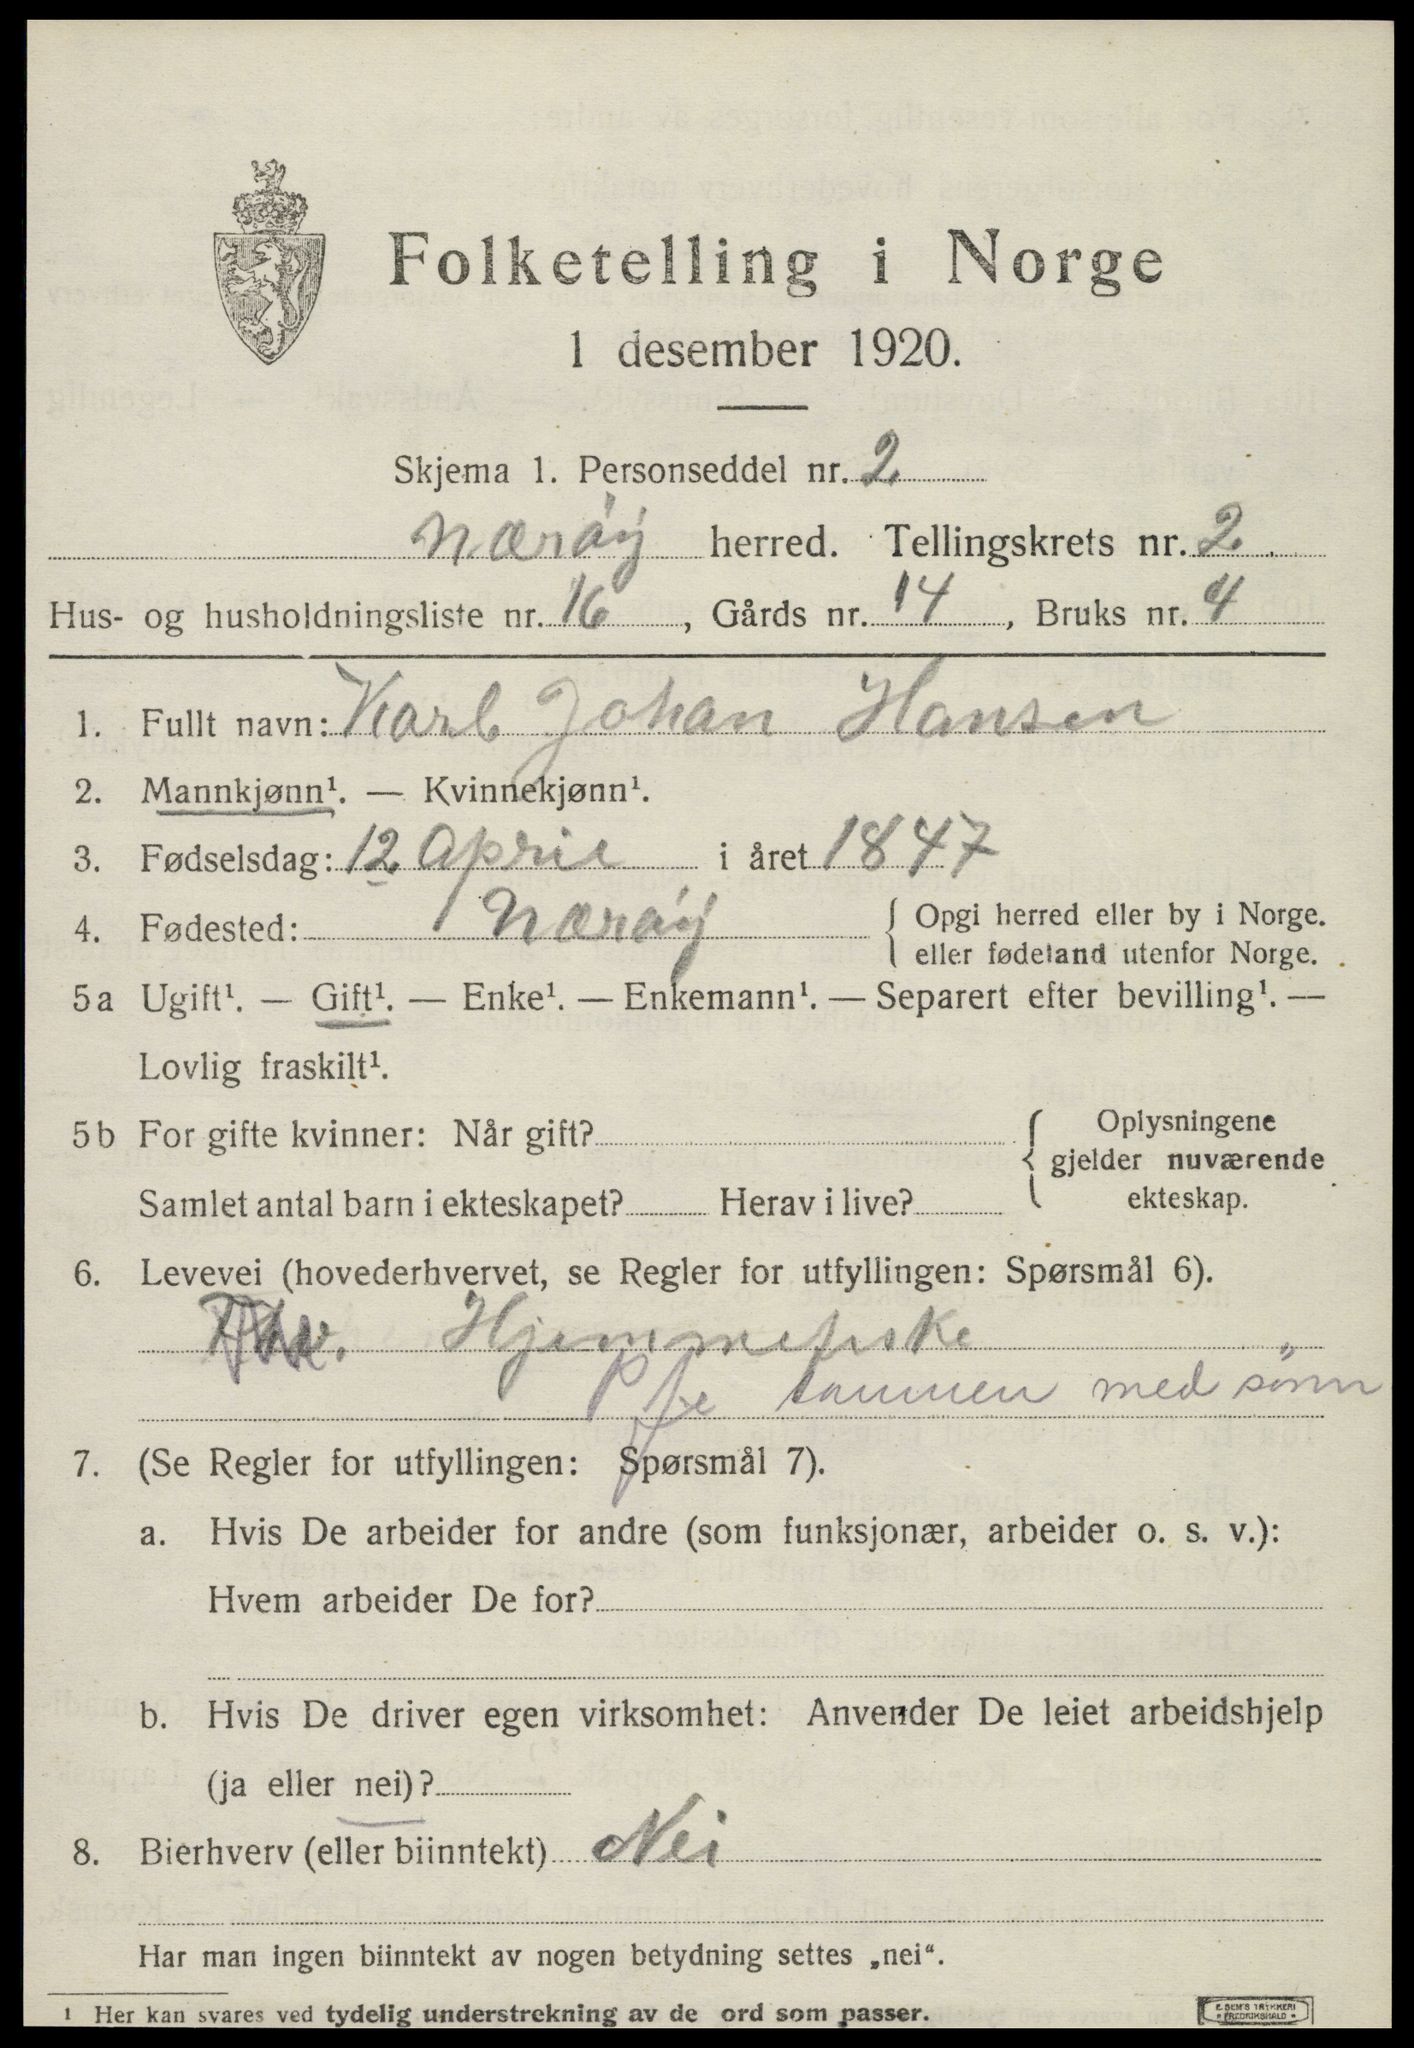 Folketelling i Norge
1 desember 1920.
Skjema 1. Personseddel nr. 2
Nærøy herred. Tellingskrets nr. 2.
Hus- og husholdningsliste nr. 16, Gårds nr. 14, Bruks nr. 4
1. Fullt navn: Karl Johan Hansen
2. Mannkjønn¹. — Kvinnekjønn¹.
3. Fødselsdag: 12 April i året 1847
4. Fødested: Nærøy { Opgi herred eller by i Norge.
eller fødeland utenfor Norge.
5a Ugift¹. — Gift¹. — Enke¹. — Enkemann¹. — Separert efter bevilling¹. —
Lovlig fraskilt¹.
5b For gifte kvinner: Når gift? { Oplysningene
gjelder nuværende
Samlet antal barn i ekteskapet? Herav i live? ekteskap.
6. Levevei (hovederhvervet, se Regler for utfyllingen: Spørsmål 6).
Hjemmefiske
sammen med sønn
7. (Se Regler for utfyllingen: Spørsmål 7).
a. Hvis De arbeider for andre (som funksjonær, arbeider o. s. v.):
Hvem arbeider De for?
b. Hvis De driver egen virksomhet: Anvender De leiet arbeidshjelp
(ja eller nei)?
8. Bierhverv (eller biinntekt) Nei
Har man ingen biinntekt av nogen betydning settes „nei“.
¹ Her kan svares ved tydelig understrekning av de ord som passer.
E. SEM'S TRYKKERI
FREDRIKSHALD